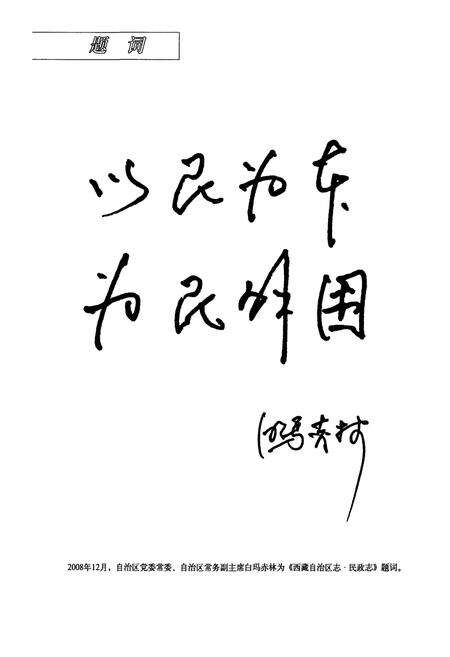 题词
以民为本
为民解困
白玛赤林
2008年12月，自治区党委常委、自治区常务副主席白玛赤林为《西藏自治区志·民政志》题词。